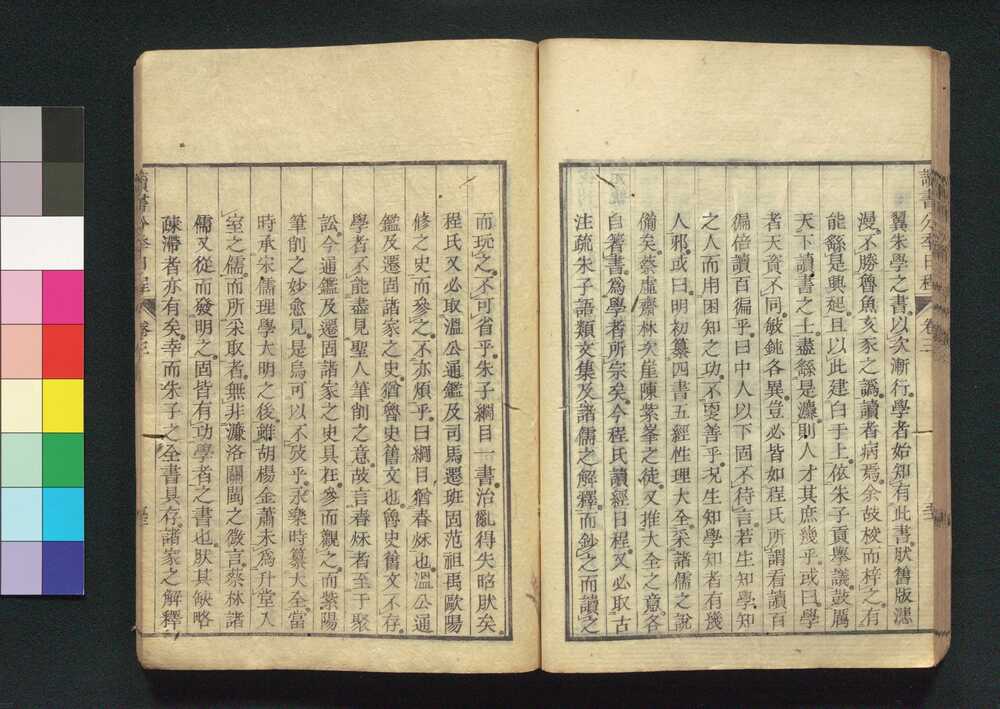 讀書分年日程 卷三
翼朱學之書以次漸行學者始知有此書狀舊版漶
漫不勝魯魚亥豕之譌讀者病焉余故校而梓之有
能繇是興起且以此建白于上依朱子貢舉議鼓厲
天下讀書之士盡繇是灋則人才其庶幾乎或曰學
者天資不同敏鈍各異豈必皆如程氏所謂看讀百
徧倍讀百徧乎曰中人以下固不待言若生知學知
之人而用困知之功不更善乎況生知學知者有幾
人邪或曰明初纂四書五經性理大全采諸儒之說
備矣蔡虛齋林次崖陳紫峯之徒又推大全之意各
自著書爲學者所宗矣今程氏讀經日程又必取古
注疏朱子語類文集及諸儒之解釋而鈔之而讀之
而玩之不可省乎朱子綱目一書治亂得失昭肰矣
程氏又必取溫公通鑑及司馬遷班固范祖禹歐陽
修之史而參之不亦煩乎曰綱目猶春秌也溫公通
鑑及遷固諸家之史猶魯史舊文也魯史舊文不存
學者不能盡見聖人筆削之意故言春秌者至于聚
訟今通鑑及遷固諸家之史具在參而觀之而紫陽
筆削之妙愈見是烏可以不攷乎永樂時纂大全當
時承宋儒理學大明之後雖胡楊金蕭未爲升堂入
室之儒而所采取者無非濂洛關閩之微言蔡林諸
儒又從而發明之固皆有功學者之書也肰其缺略
疎滯者亦有矣幸而朱子之全書具存諸家之解釋
讀書分年日程 卷三